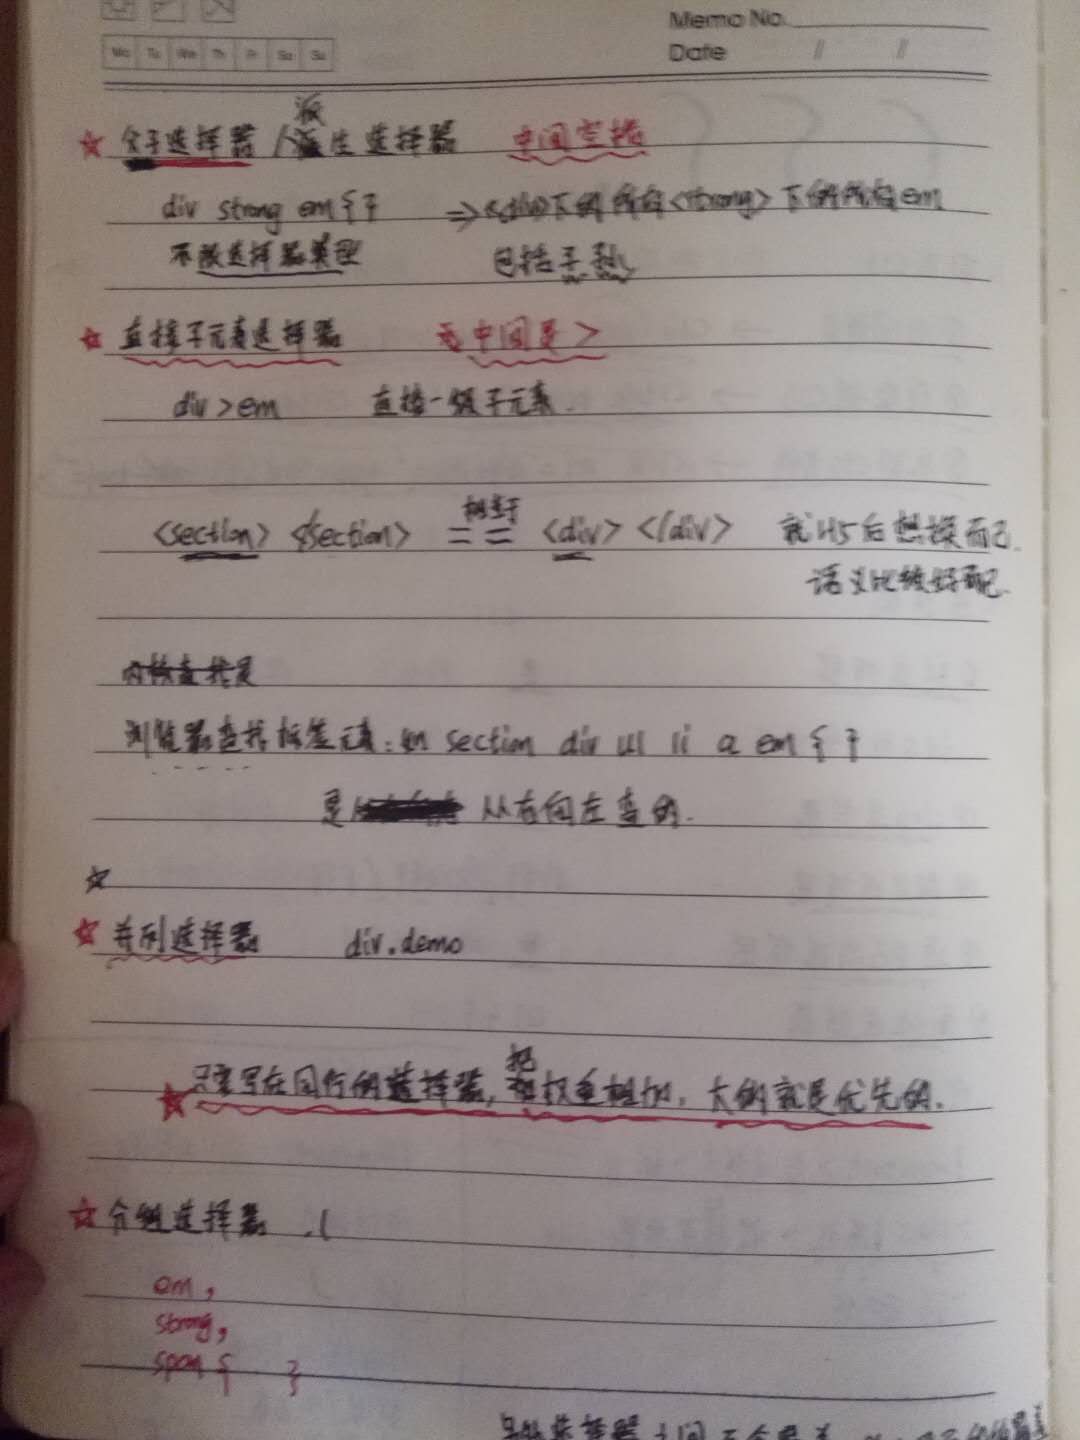 Memo No.
Mo Tu We Th Fr Sa Su
Date / /
父子选择器 / 派生选择器 中间空格
div strong em { } => <div>下的所有<strong>下的所有em
不限选择器类型 包括子孙
直接子元素选择器 无中间是 >
div > em 直接一级子元素.
相当于
<section> </section> == <div> </div> 就H5后想换而已.
语义比较好配.
内核查找是
浏览器查找标签元素: 如 section div ul li a em { }
是 从右向左查的.
并列选择器 div.demo
只要写在同行的选择器, 把权重相加, 大的就是优先的.
分组选择器
em,
strong,
span { }